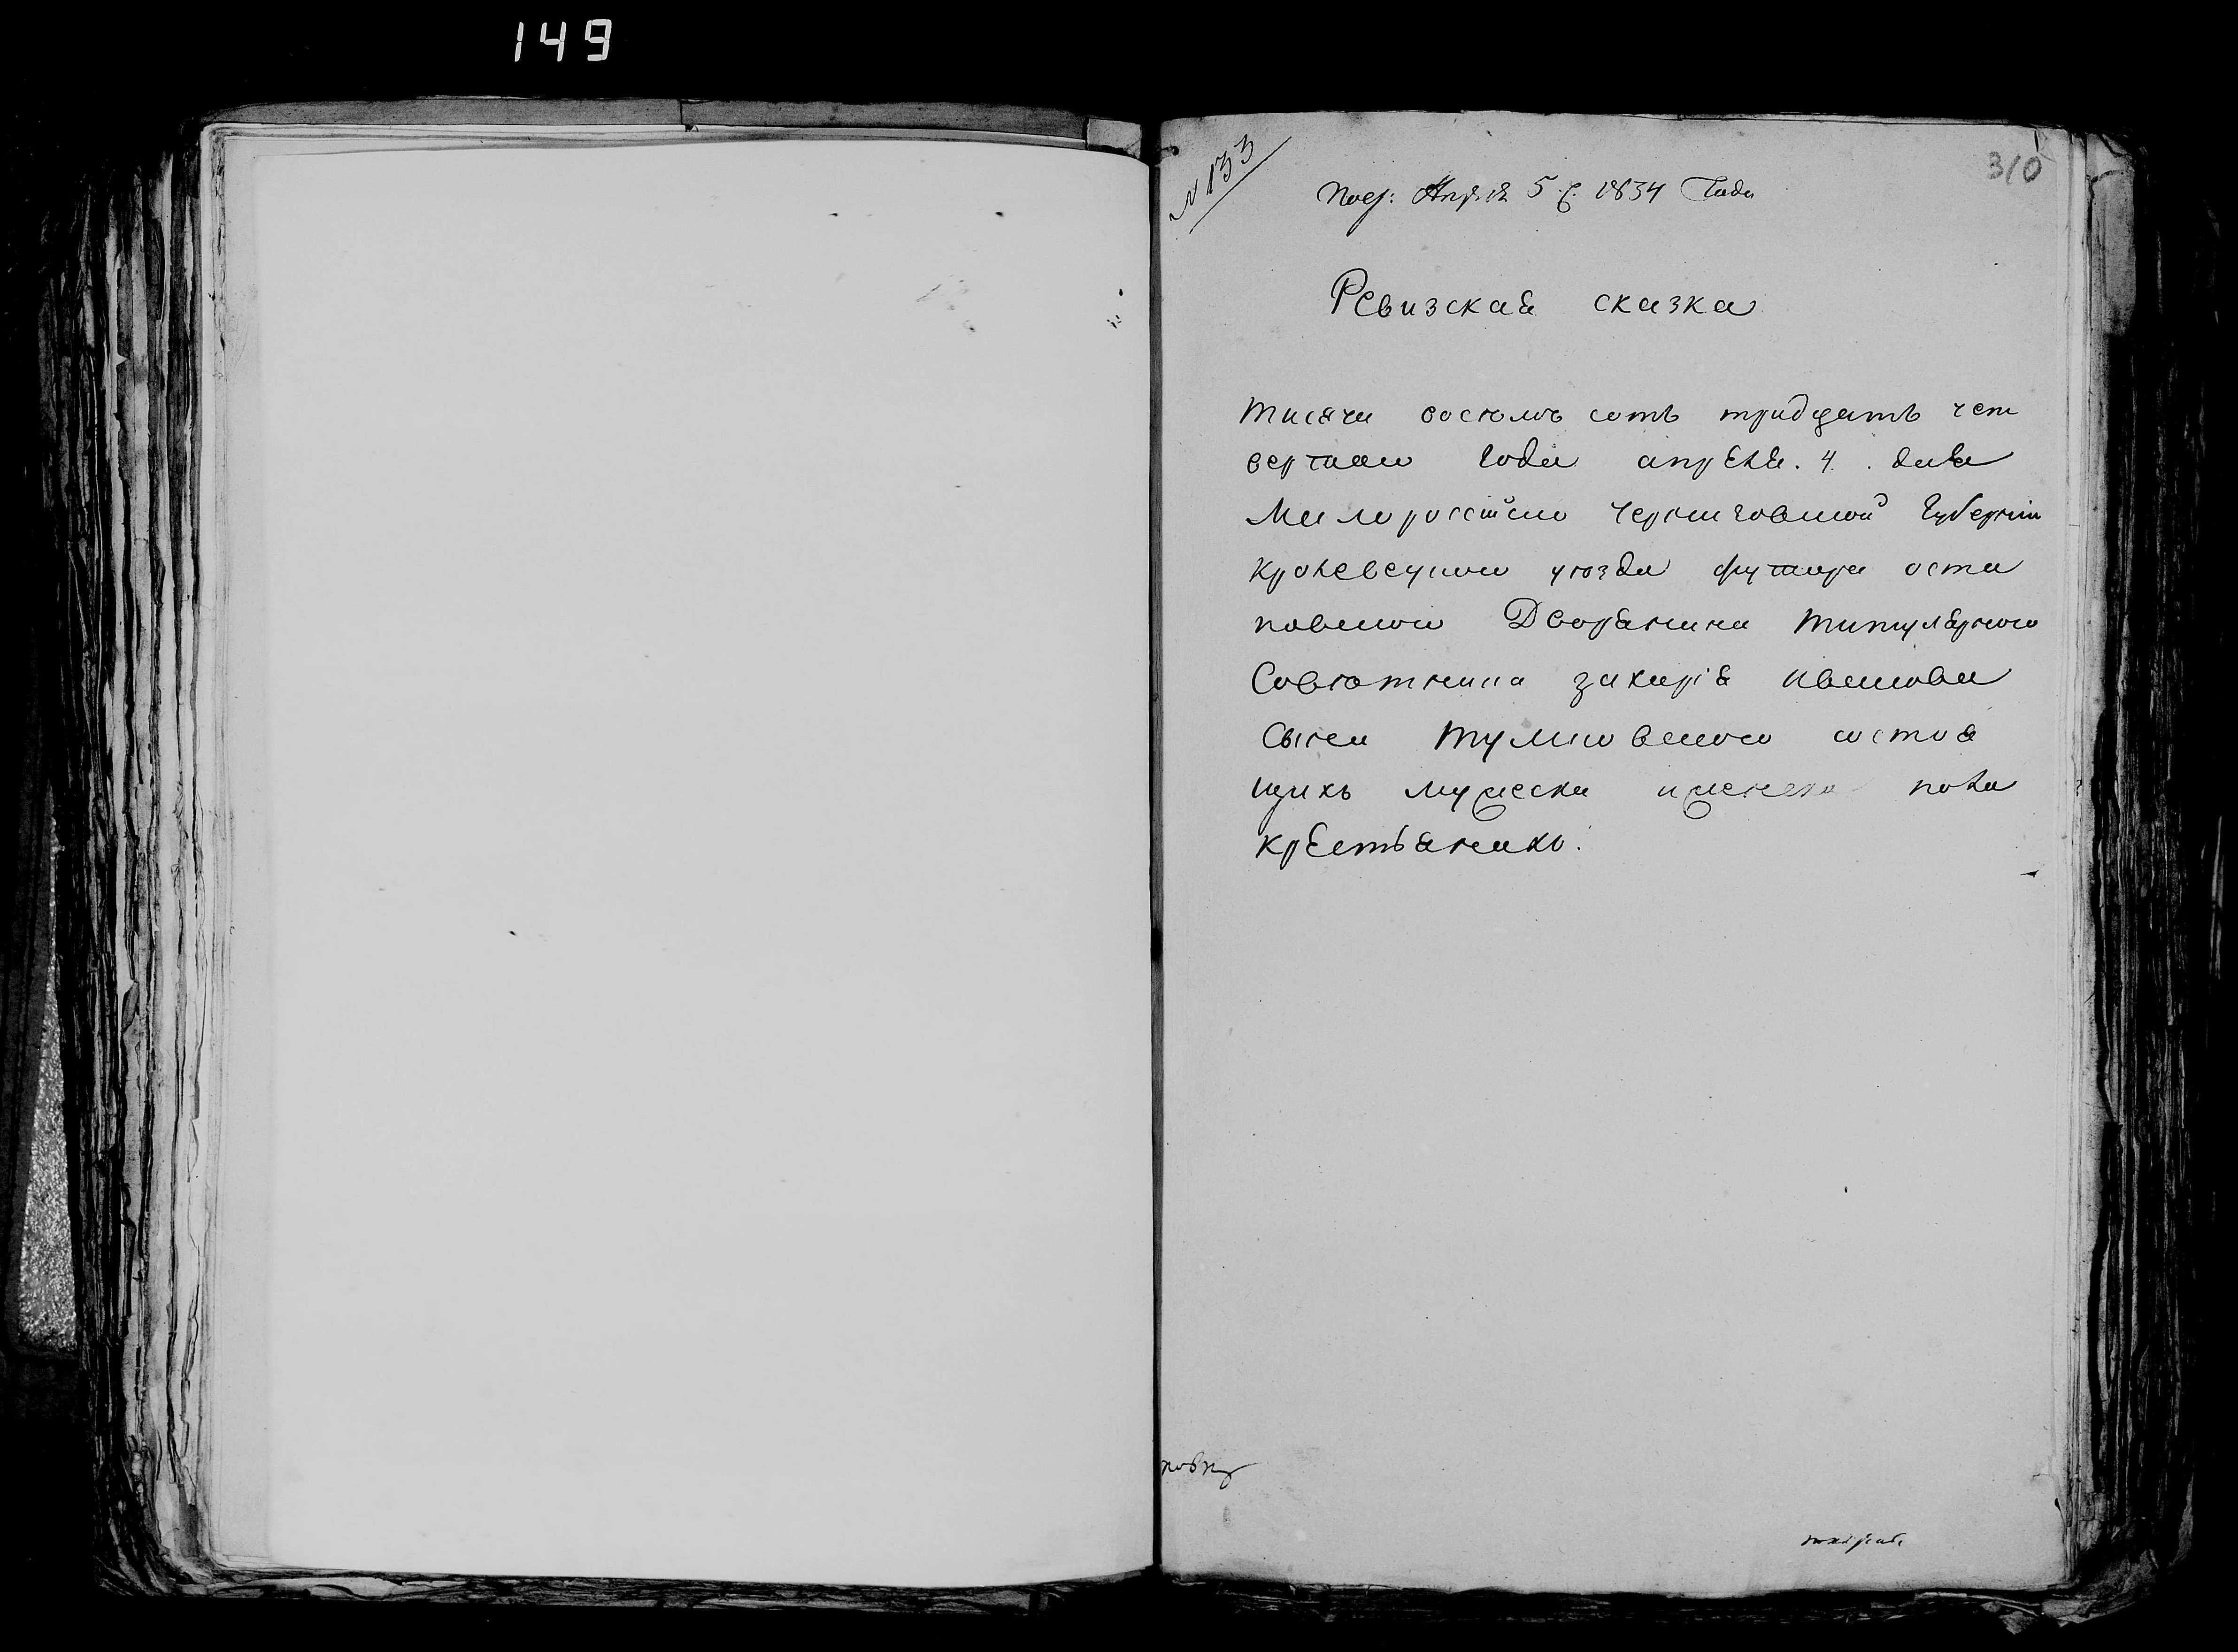 149
N 133
310
Пол: Апреля 5 г. 1834 Года
Ревизская сказка
тисячи восюмъ сотъ тридцать чет
вертаго года апреля. 4. дня
Малоросийско черниговской Губернии
кролевецкого уюзда футора оста
повского Дворянина титулярного
Совютника захария Иванова
сына тумковского состоя
щихъ мужеска иженска пола
крестьянахъ.